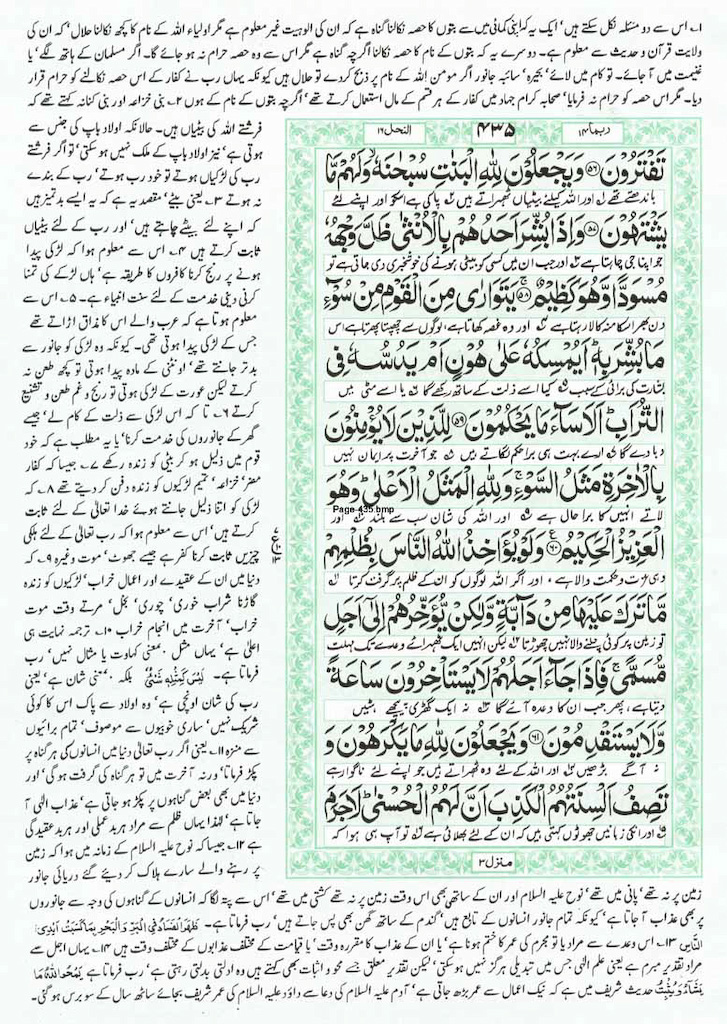 ۱۔ اس سے دو مسئلہ نکل سکتے ہیں‘ ایک یہ کہ اپنی کمائی میں سے بتوں کا حصہ نکالنا گناہ ہے کہ ان کی الوہیت غیر معلوم ہے مگر اولیاء اللہ کے نام کا کچھ نکالنا حلال‘ کہ ان کی
ولایت قرآن و حدیث سے معلوم ہے۔ دوسرے یہ کہ بتوں کے نام کا حصہ نکالنا اگرچہ گناہ ہے مگر اس سے وہ حصہ حرام نہ ہو جائے گا۔ اگر مسلمان کے ہاتھ لگے‘ یا
غنیمت میں آ جائے۔ تو کام میں لائے‘ بحیرہ‘ سائبہ جانور اگر مومن اللہ کے نام پر ذبح کر دے تو حلال ہیں کیونکہ یہاں رب نے کفار کے اس حصہ نکالنے کو حرام قرار
دیا۔ مگر اس حصہ کو حرام نہ فرمایا‘ صحابہ کرام جہاد میں کفار کے ہر قسم کے مال استعمال کرتے تھے‘ اگرچہ بتوں کے نام کے ہوں ۲۔ بنی خزاعہ اور بنی کنانہ کہتے تھے کہ
ربما ۱۴
۴۳۵
النحل ۱۶
تَفْتَرُوْنَ ﴿۵۶﴾ وَيَجْعَلُوْنَ لِلّٰهِ الْبَنٰتِ سُبْحٰنَهٗ ۙ وَلَهُمْ مَّا
باندھتے تھے اور اللہ کیلئے بیٹیاں ٹھہراتے ہیں پاکی ہے اسکو اور اپنے لئے
يَشْتَهُوْنَ ﴿۵۷﴾ وَاِذَا بُشِّرَ اَحَدُهُمْ بِالْاُنْثٰى ظَلَّ وَجْهُهٗ
جو اپنا جی چاہتا ہے اور جب ان میں کسی کو بیٹی ہونے کی خوشخبری دی جاتی ہے تو
مُسْوَدًّا وَّهُوَ كَظِيْمٌ ﴿۵۸﴾ يَتَوَارٰى مِنَ الْقَوْمِ مِنْ سُوْٓءِ
دن بھر اسکا منہ کالا رہتا ہے اور وہ غصہ کھاتا ہے لوگوں سے چھپتا پھرتا ہے اس
مَا بُشِّرَ بِهٖ ؕ اَيُمْسِكُهٗ عَلٰى هُوْنٍ اَمْ يَدُسُّهٗ فِى
بشارت کی برائی کے سبب کیا اسے ذلت کے ساتھ رکھے گا یا اسے مٹی میں
التُّرَابِ ؕ اَلَا سَآءَ مَا يَحْكُمُوْنَ ﴿۵۹﴾ لِلَّذِيْنَ لَا يُؤْمِنُوْنَ
دبا دے گا ارے بہت ہی برا حکم لگاتے ہیں جو آخرت پر ایمان نہیں
بِالْاٰخِرَةِ مَثَلُ السَّوْءِ ۚ وَلِلّٰهِ الْمَثَلُ الْاَعْلٰى ؕ وَهُوَ
Page-435.bmp
لاتے انہیں کا برا حال ہے اور اللہ کی شان سب سے بلند اور
الْعَزِيْزُ الْحَكِيْمُ ﴿۶۰﴾ وَلَوْ يُؤَاخِذُ اللّٰهُ النَّاسَ بِظُلْمِهِمْ
وہی عزت و حکمت والا ہے اور اگر اللہ لوگوں کو ان کے ظلم پر گرفت کرتا
مَّا تَرَكَ عَلَيْهَا مِنْ دَآبَّةٍ وَّلٰكِنْ يُّؤَخِّرُهُمْ اِلٰٓى اَجَلٍ
تو زمین پر کوئی چلنے والا نہیں چھوڑتا لیکن انہیں ایک ٹھہرائے وعدے تک مہلت
مُّسَمًّى ۚ فَاِذَا جَآءَ اَجَلُهُمْ لَا يَسْتَاْخِرُوْنَ سَاعَةً
دیتا ہے پھر جب ان کا وعدہ آئے گا نہ ایک گھڑی پیچھے ہٹیں
وَّلَا يَسْتَقْدِمُوْنَ ﴿۶۱﴾ وَيَجْعَلُوْنَ لِلّٰهِ مَا يَكْرَهُوْنَ وَ
نہ آگے بڑھیں اور اللہ کے لئے وہ ٹھہراتے ہیں جو اپنے لئے ناگوار ہے
تَصِفُ اَلْسِنَتُهُمُ الْكَذِبَ اَنَّ لَهُمُ الْحُسْنٰى ؕ لَا جَرَمَ
اور انکی زبانیں جھوٹوں کہتی ہیں کہ ان کے لئے بھلائی ہے تو آپ ہی ہوا کہ
منزل ۳
فرشتے اللہ کی بیٹیاں ہیں۔ حالانکہ اولاد باپ کی جنس سے
ہوتی ہے‘ نیز اولاد باپ کے ملک نہیں ہو سکتی‘ تو اگر فرشتے
رب کی لڑکیاں ہوتے تو خود رب ہوتے‘ رب کے بندے
نہ ہوتے ۳۔ یعنی بیٹے‘ مقصد یہ ہے کہ یہ ایسے بدتمیز ہیں
کہ اپنے لئے بیٹے چاہتے ہیں‘ اور رب کے لئے بیٹیاں
ثابت کرتے ہیں ۴۔ اس سے معلوم ہوا کہ لڑکی پیدا
ہونے پر رنج کرنا کافروں کا طریقہ ہے‘ ہاں لڑکے کی تمنا
کرنی دینی خدمت کے لئے سنت انبیاء ہے۔ ۵۔ اس سے
معلوم ہوتا ہے کہ عرب والے اس کا مذاق اڑاتے تھے
جس کے لڑکی پیدا ہوتی تھی۔ کیونکہ وہ لڑکی کو جانور سے
بدتر جانتے تھے‘ اونٹنی کے مادہ پیدا ہوتی تو کچھ طعن نہ
کرتے لیکن عورت کے لڑکی ہوتی تو رنج و غم طعن و تشنیع
کرتے ۶۔ تا کہ اس لڑکی سے ذلت کے کام لے‘ جیسے
گھر کے جانوروں کی خدمت کرنا‘ یا یہ مطلب ہے کہ خود
قوم میں ذلیل ہو کر بیٹی کو زندہ رکھے ۷۔ جیسا کہ کفار
مضر‘ خزاعہ‘ تمیم لڑکیوں کو زندہ دفن کر دیتے تھے ۸۔ کہ
لڑکی کو اتنا ذلیل جانتے ہوئے خدا تعالیٰ کے لئے ثابت
کرتے ہیں‘ اس سے معلوم ہوا کہ رب تعالیٰ کے لئے ہلکی
چیزیں ثابت کرنا کفر ہے جیسے جھوٹ‘ موت وغیرہ ۹۔ کہ
دنیا میں ان کے عقیدے اور اعمال خراب‘ لڑکیوں کو زندہ
گاڑنا شراب خوری‘ چوری‘ بخل‘ مرتے وقت موت
خراب‘ آخرت میں انجام خراب ۱۰۔ ترجمہ نہایت ہی
اعلیٰ ہے‘ یہاں مثل معنی کہاوت یا مثال نہیں‘ رب
فرماتا ہے۔ لَیْسَ کَمِثْلِهٖ شَیْءٌ بلکہ معنی شان ہے‘ یعنی
رب کی شان اونچی ہے‘ وہ اولاد سے پاک اس کا کوئی
شریک نہیں‘ ساری خوبیوں سے موصوف‘ تمام برائیوں
سے منزہ ۱۱۔ یعنی اگر رب تعالیٰ دنیا میں انسانوں کی ہر گناہ پر
پکڑ فرماتا‘ ورنہ آخرت میں تو ہر گناہ کی گرفت ہو گی‘ اور
دنیا میں بھی بعض گناہوں پر پکڑ ہو جاتی ہے‘ عذاب الٰہی آ
جاتا ہے‘ لہٰذا یہاں ظلم سے مراد ہر بدعملی اور ہر بدعقیدگی
ہے ۱۲۔ جیسا کہ نوح علیہ السلام کے زمانہ میں ہوا کہ زمین
پر رہنے والے سارے ہلاک کر دیئے گئے دریائی جانور
زمین پر نہ تھے‘ پانی میں تھے‘ نوح علیہ السلام اور ان کے ساتھی بھی اس وقت زمین پر نہ تھے کشتی میں تھے‘ اس سے پتہ لگا کہ انسانوں کے گناہوں کی وجہ سے جانوروں
پر بھی عذاب آ جاتا ہے‘ کیونکہ تمام جانور انسانوں کے تابع ہیں‘ گندم کے ساتھ گھن بھی پس جاتے ہیں‘ رب فرماتا ہے۔ ظَهَرَ الْفَسَادُ فِی الْبَرِّ وَالْبَحْرِ بِمَا کَسَبَتْ اَیْدِی
النَّاسِ ۱۳۔ اس وعدے سے مراد یا تو مجرم کی عمر کا ختم ہونا ہے‘ یا ان کے عذاب کا مقررہ وقت‘ یا قیامت کے مختلف عذابوں کے مختلف وقت ہیں ۱۴۔ یہاں اجل سے
مراد تقدیر مبرم ہے یعنی علم الٰہی جس میں تبدیلی ہرگز نہیں ہو سکتی‘ لیکن تقدیر معلق جسے محو و اثبات بھی کہتے ہیں وہ ادلتی بدلتی رہتی ہے‘ رب فرماتا ہے یَمْحُو اللّٰهُ مَا
یَشَآءُ وَیُثْبِتُ حدیث شریف میں ہے کہ نیک اعمال سے عمر بڑھ جاتی ہے‘ آدم علیہ السلام کی دعا سے داؤد علیہ السلام کی عمر شریف بجائے ساٹھ سال کے سو برس ہو گئی۔